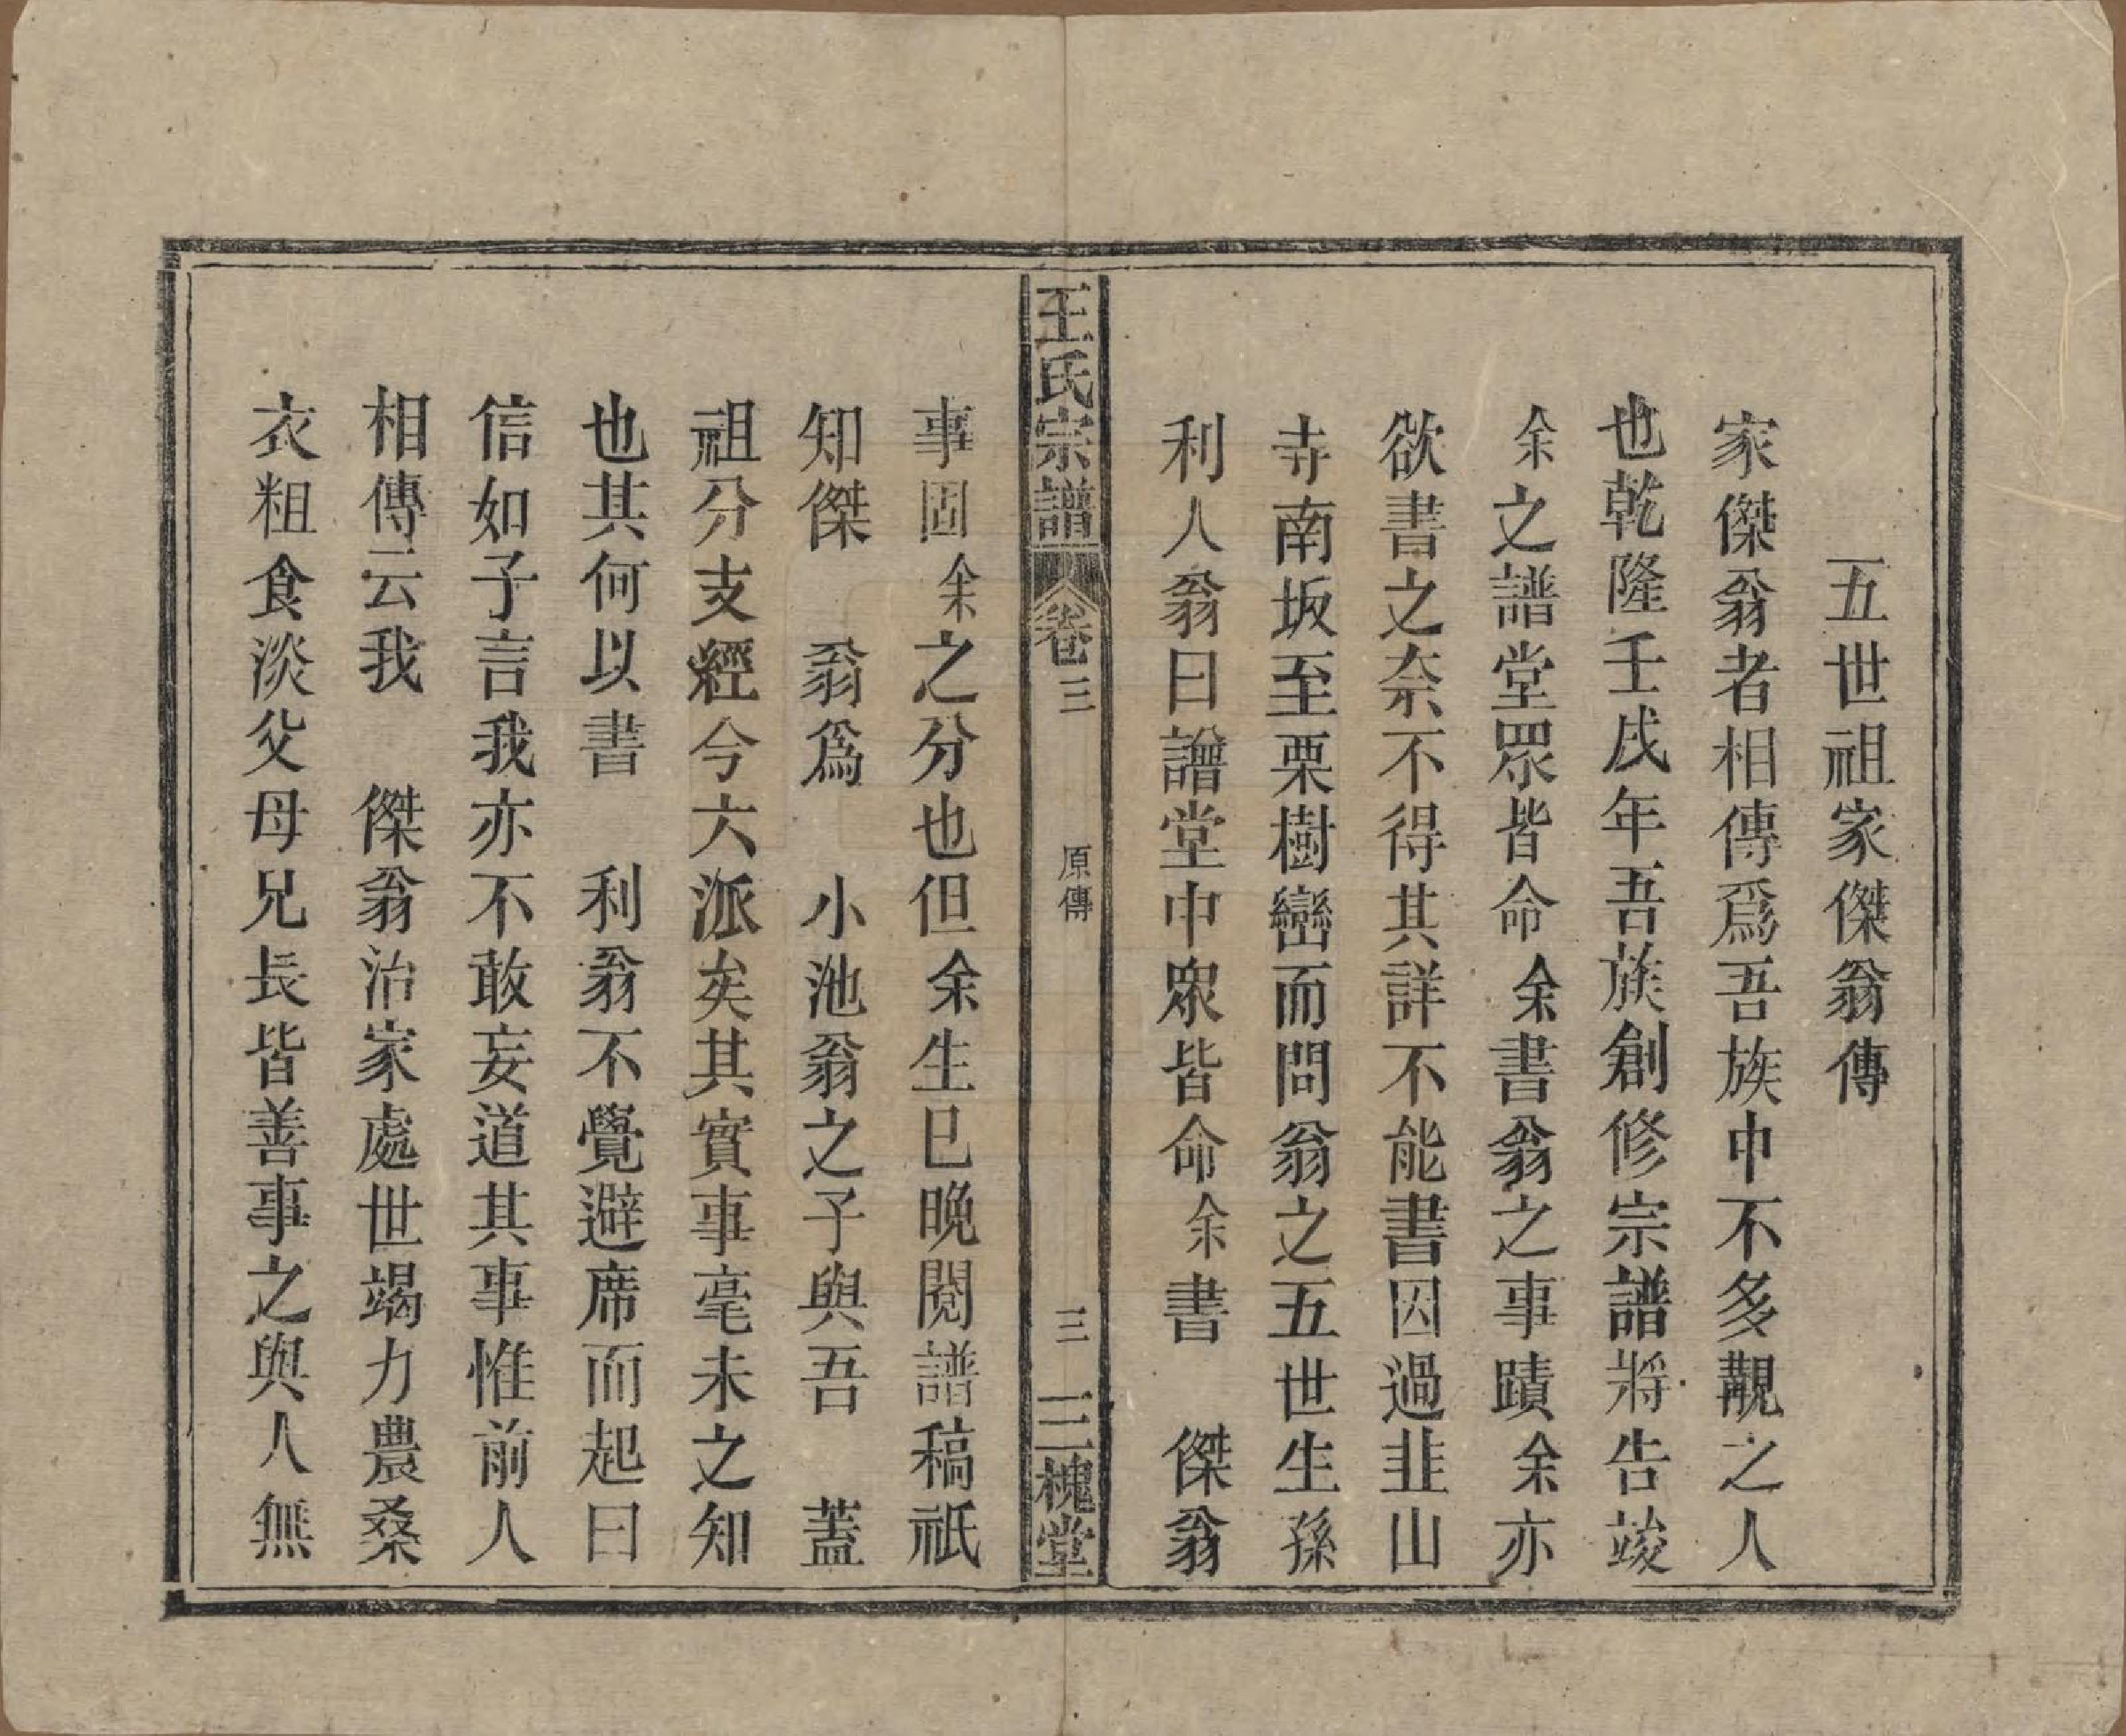 五世祖家傑翁傳
家傑翁者相傳爲吾族中不多覯之人
也乾隆壬戌年吾族創修宗譜將告竣
余之譜堂眾皆命余書翁之事蹟余亦
欲書之奈不得其詳不能書因過韭山
寺南坂至栗樹巒而問翁之五世生孫
利人翁曰譜堂中眾皆命余書 傑翁
王氏宗譜 卷三 原傳 三 三槐堂
事固余之分也但余生已晚閱譜稿祇
知傑 翁爲 小池翁之子與吾 蓋
祖分支經今六派矣其實事毫未之知
也其何以書 利翁不覺避席而起曰
信如子言我亦不敢妄道其事惟前人
相傳云我 傑翁治家處世竭力農桑
衣粗食淡父母兄長皆善事之與人無